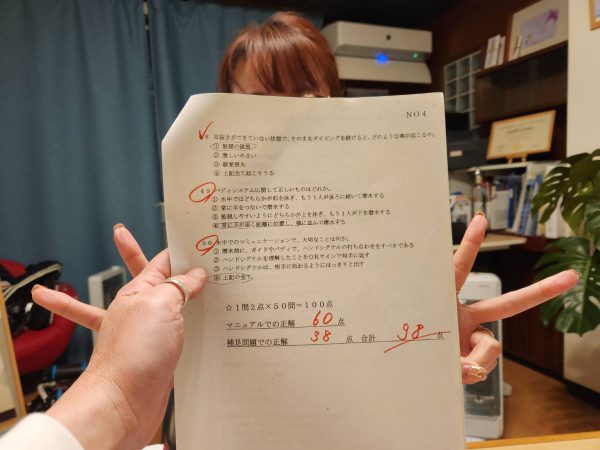 NO4
8 耳抜きができていない状態で、そのままダイビングを続けると、どのような事が起こるか。
① 鼓膜の破裂
② 激しいめまい
③ 聴覚喪失
④ 上記全て起こりうる
49 バディシステムに関して正しいものはどれか。
① 水中ではどちらかが前を泳ぎ、もう1人が後ろに続いて潜水する
② 常に手をつないで潜水する
③ 監視しやすいようにどちらかが上を泳ぎ、もう1人が下を潜水する
④ 常に手が届く距離に位置し、横に並んで潜水する
50 水中でのコミュニケーションで、大切なことは何か。
① 潜水前に、ガイドやバディで、ハンドシグナルの打ち合わせをすべきである
② ハンドシグナルを理解したことをOKサインで相手に返す
③ ハンドシグナルは、相手に伝わるようにはっきりと出す
④ 上記の全て
☆1問2点×50問=100点
マニュアルでの正解 60 点
補足問題での正解 38 点 合計 98 点